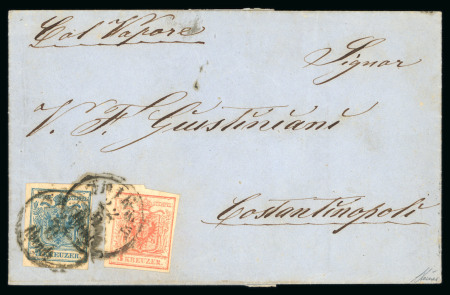 Col Vapore
Signor
V. F. Giustiniani
Costantinopoli
KREUZER
KREUZER